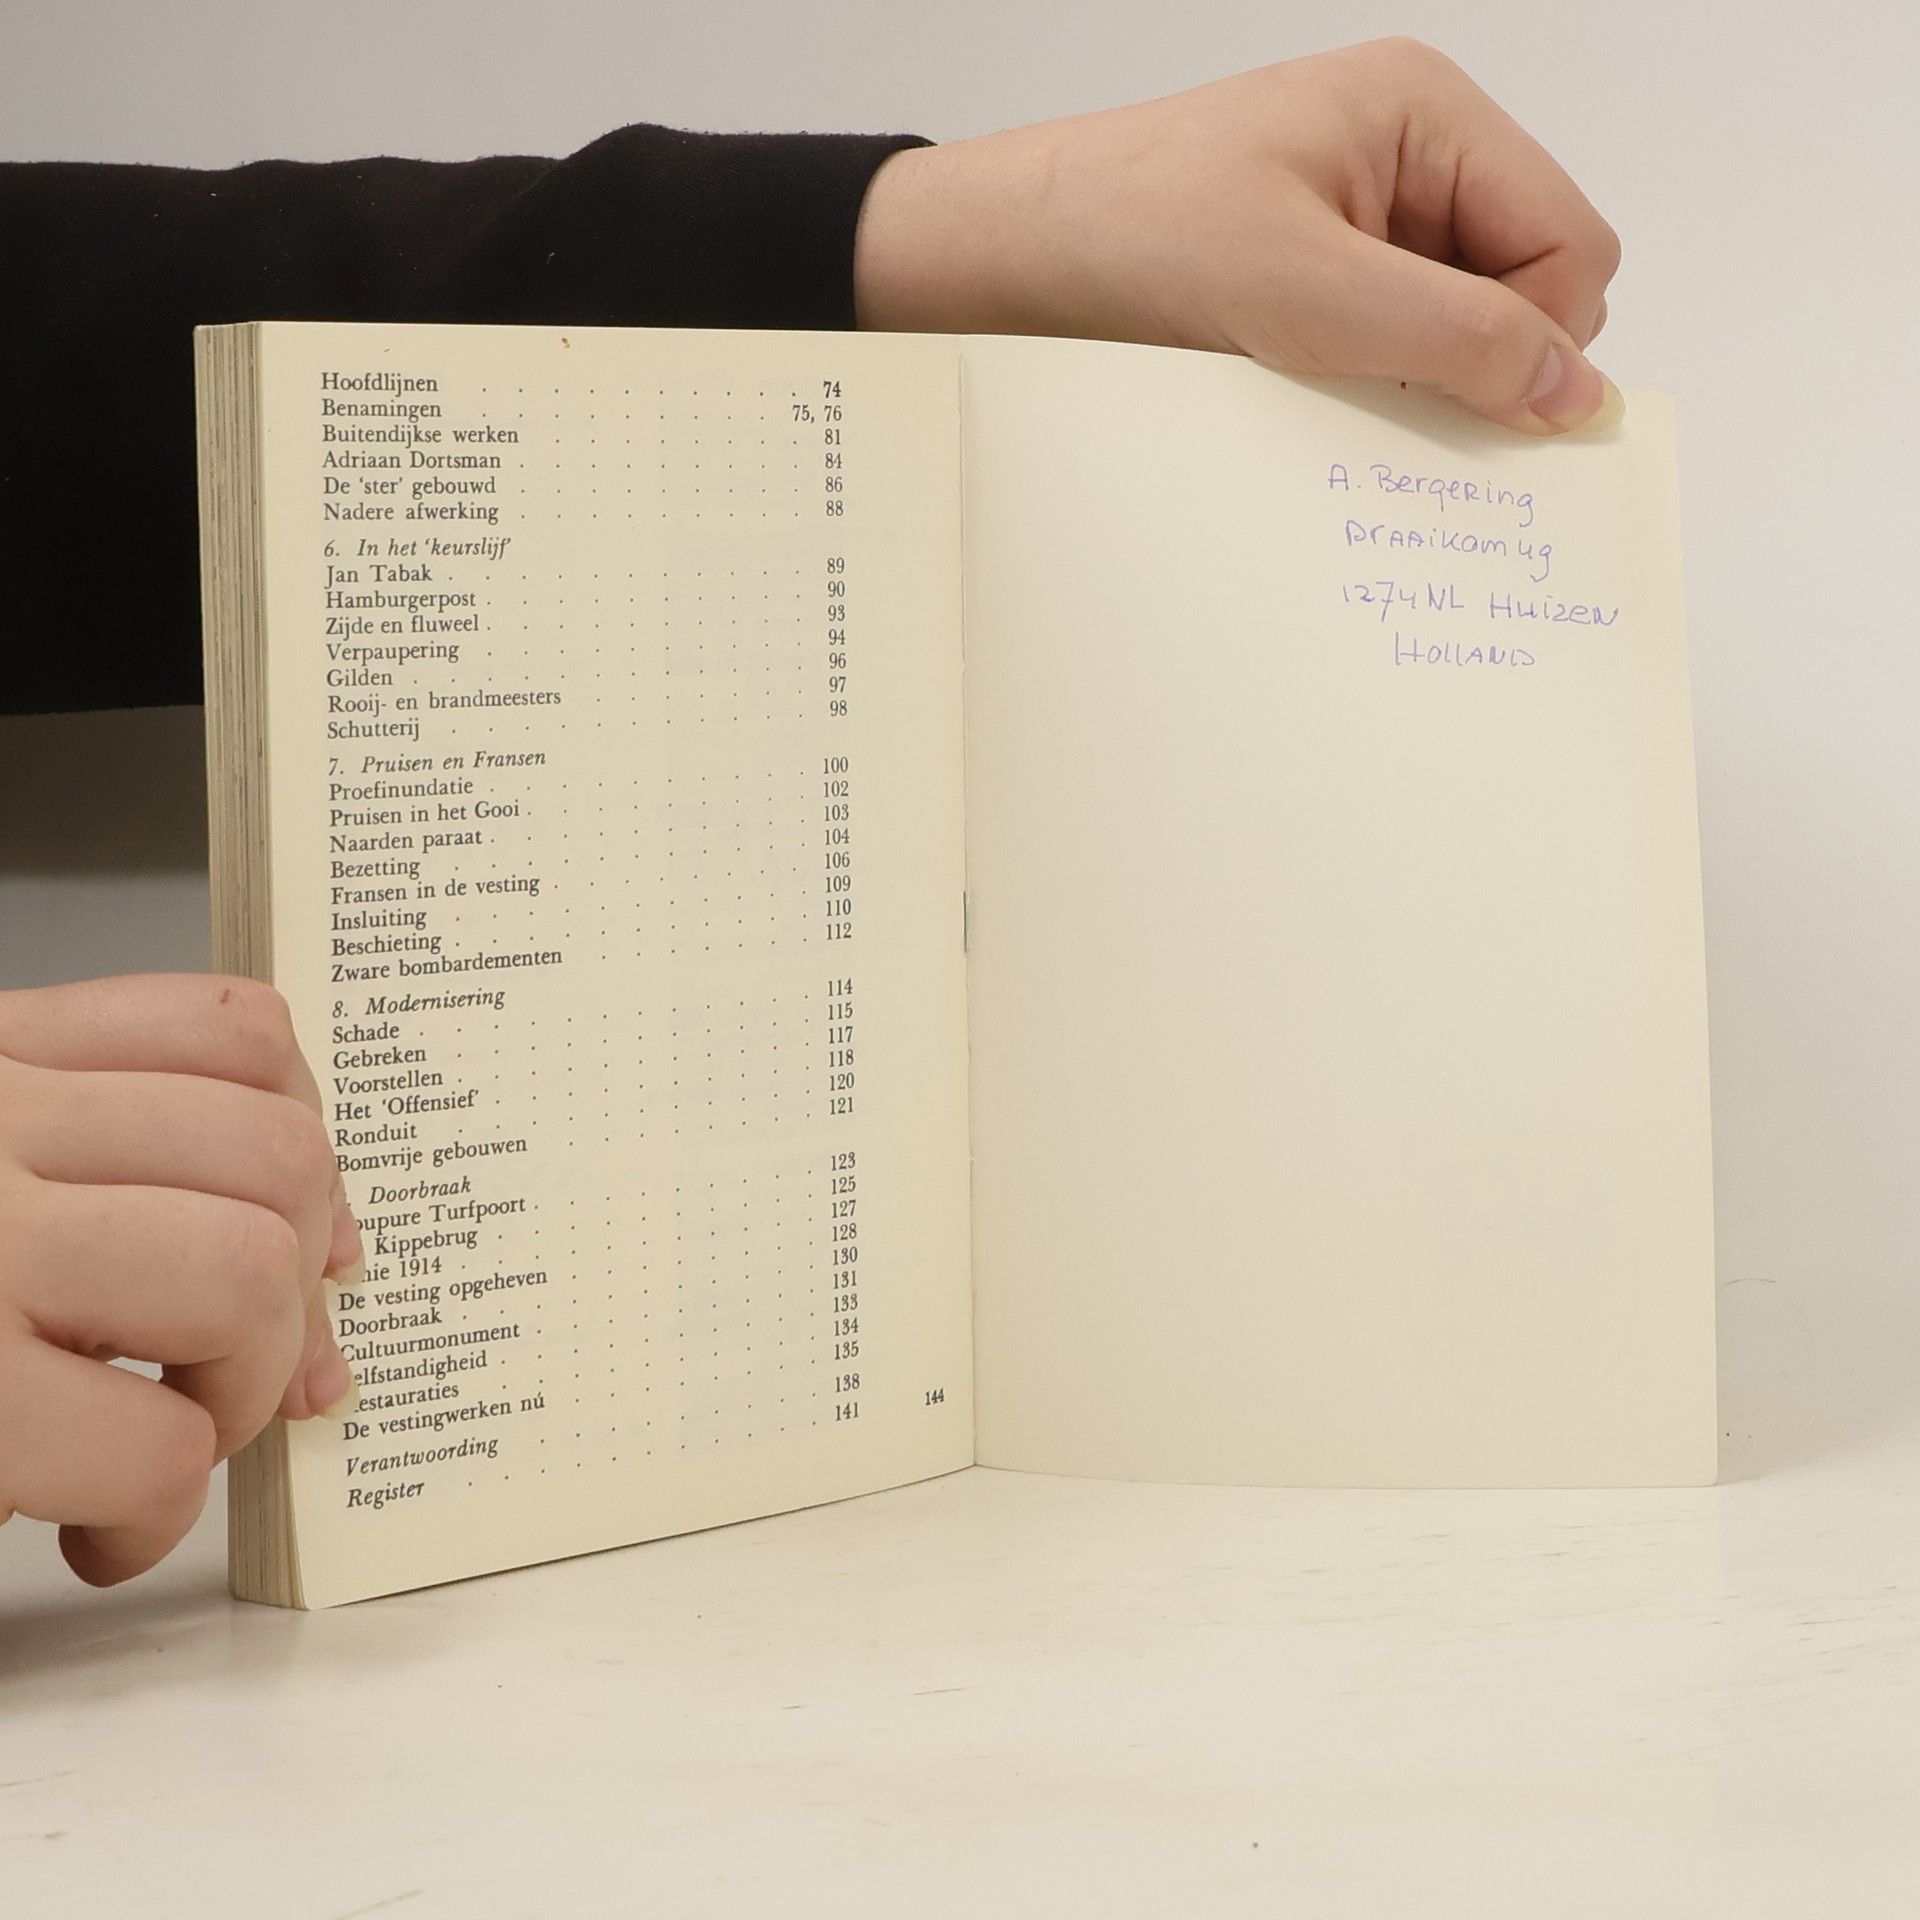 Hoofdlijnen . . . . . . . . . 74
Benamingen . . . . . . . . 75, 76
Buitendijkse werken . . . . . . . 81
Adriaan Dortsman . . . . . . . . 84
De ‘ster’ gebouwd . . . . . . . . 86
Nadere afwerking . . . . . . . . 88
6. In het ‘keurslijf’
Jan Tabak . . . . . . . . . . 89
Hamburgerpost . . . . . . . . . 90
Zijde en fluweel . . . . . . . . . 93
Verpaupering . . . . . . . . . 94
Gilden . . . . . . . . . . . 96
Rooij- en brandmeesters . . . . . . 97
Schutterij . . . . . . . . . . 98
7. Pruisen en Fransen
Proefinundatie . . . . . . . . . 100
Pruisen in het Gooi . . . . . . . . 102
Naarden paraat . . . . . . . . . 103
Bezetting . . . . . . . . . . 104
Fransen in de vesting . . . . . . . 106
Insluiting . . . . . . . . . . 109
Beschieting . . . . . . . . . . 110
Zware bombardementen . . . . . . 112
8. Modernisering
Schade . . . . . . . . . . . 114
Gebreken . . . . . . . . . . 115
Voorstellen . . . . . . . . . . 117
Het ‘Offensief’ . . . . . . . . . 118
Ronduit . . . . . . . . . . 120
Bomvrije gebouwen . . . . . . . 121
Doorbraak
Turfpoort . . . . . . . . 123
Kippebrug . . . . . . . . . 125
1914 . . . . . . . . . . 127
De vesting opgeheven . . . . . . . 128
Doorbraak . . . . . . . . . . 130
Cultuurmonument . . . . . . . . 131
elfstandigheid . . . . . . . . . 133
estauraties . . . . . . . . . 134
De vestingwerken nú . . . . . . . 135
Verantwoording . . . . . . . . 138
Register . . . . . . . . . . 141
144
A. Bergering
Draaikom 49
1274 NL Huizen
HOLLAND